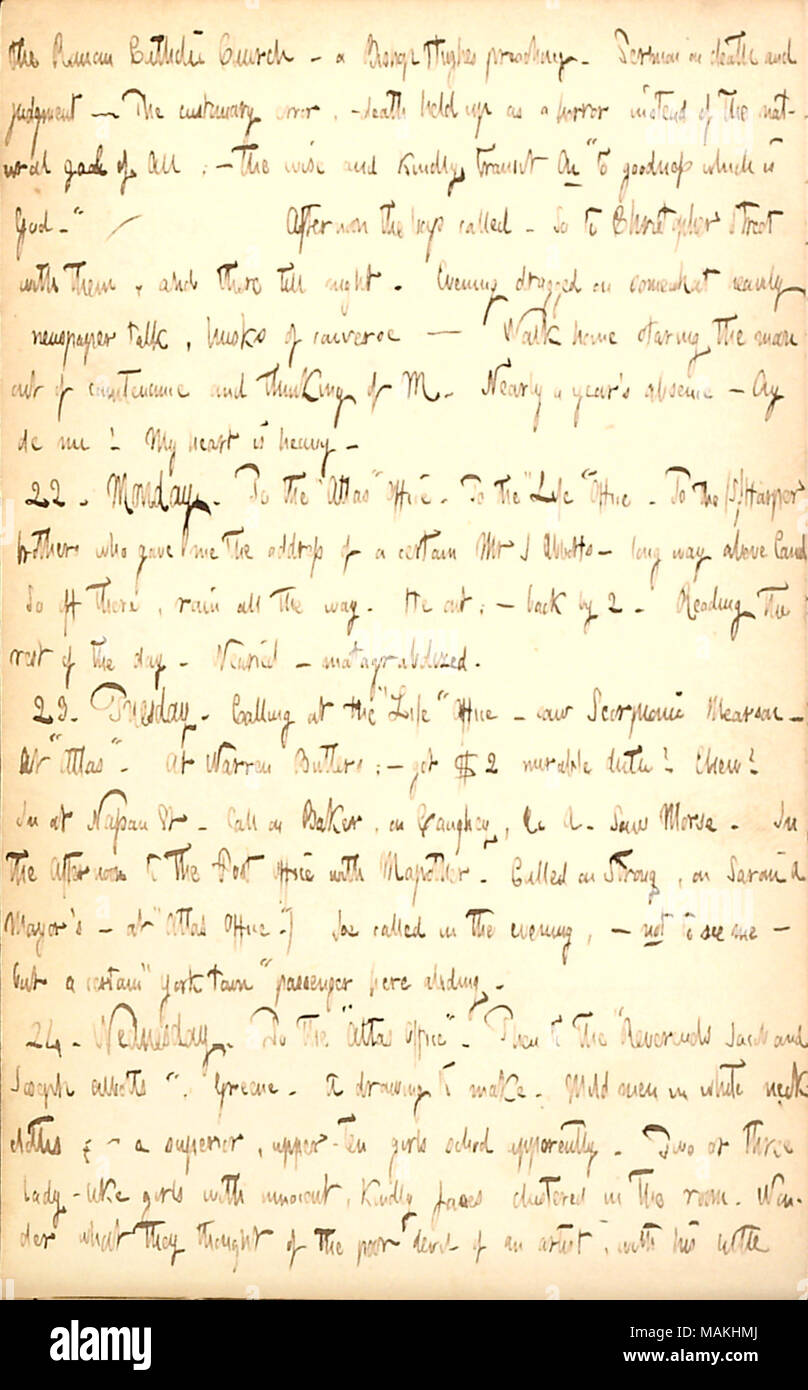 the Roman Catholic Church – a Bishop Hughes preaching. Sermon on death and
judgment — The customary error, – death held up as a horror instead of the nat-
ural goal of all ; – the wise and kindly transit "to goodness which is
God –"
Afternoon the boys called – So to Christopher Street
with them, and there till night. Evening dragged on somewhat heavily
newspaper talk, husks of converse — Walk home staring the moon
out of countenance and thinking of M. Nearly a year's absence – Ay
de me! My heart is heavy –
22. Monday. To the "Atlas" Office. To the "Life" Office. To the (5) Harper
brothers who gave me the address of a certain Mr J Abbotts – long way above Canal
So off there, rain all the way. He out; – back by 2. Reading the
rest of the day. Wearied – matagrabolized.
23. Tuesday. Calling at the "Life" Office – saw Scorphonic Mearson –
At "Atlas". At Warren Butlers; – got $2 mirabile dictu! Eheu!
In at Nassau St – Call on Baker, on Gaughey, &c &. Saw Morse. In
the Afternoon to the Post office with Mapother. Called on Strong, on Saroni &
Mayor's – at "Atlas Office".) Joe called in the evening, – not to see me –
but a certain "York town" passenger here abiding.
24. Wednesday. To the "Atlas Office". Then to the "Reverends Jacob and
Joseph Abbotts". Greene. A drawing to make. Mild men in white neck
cloths & – a superior, upper-ten girls school apparently. Two or three
lady-like girls with innocent, kindly faces clustered in the room. Won-
der what they thought of the poor devil of an artist, with his little
alamy
Image ID: MAKHMJ
www.alamy.com